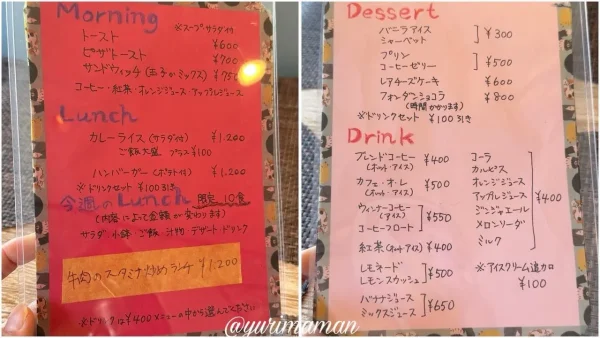 Morning
※スープサラダ付
トースト ¥600
ピザトースト ¥700
サンドウィッチ(玉子かミックス) ¥750
コーヒー・紅茶・オレンジジュース・アップルジュース
Lunch
カレーライス(サラダ付) ¥1,200
ご飯大盛 プラス¥100
ハンバーガー(ポテト付) ¥1,200
※ドリンクセット ¥100引き
今週のLunch 限定10食
(内容によって金額が変わります)
サラダ・小鉢・ご飯・汁物・デザート・ドリンク
牛肉のスタミナ炒めランチ ¥1,200
※ドリンクは¥400メニューの中から選んでください
Dessert
バニラアイス
シャーベット ¥300
プリン
コーヒーゼリー ¥500
レアチーズケーキ ¥600
フォンダンショコラ ¥800
(時間かかります)
※ドリンクセット ¥100引き
Drink
ブレンドコーヒー ¥400
(ホット・アイス)
カフェ・オ・レ ¥500
(ホット・アイス)
ウィンナーコーヒー
(アイス)
コーヒーフロート ¥550
紅茶(ホット・アイス) ¥400
レモネード
レモンスカッシュ ¥500
バナナジュース
ミックスジュース ¥650
コーラ
カルピス
オレンジジュース
アップルジュース
ジンジャエール
メロンソーダ
ミルク
¥400
※アイスクリーム追加
¥100
@yurimaman